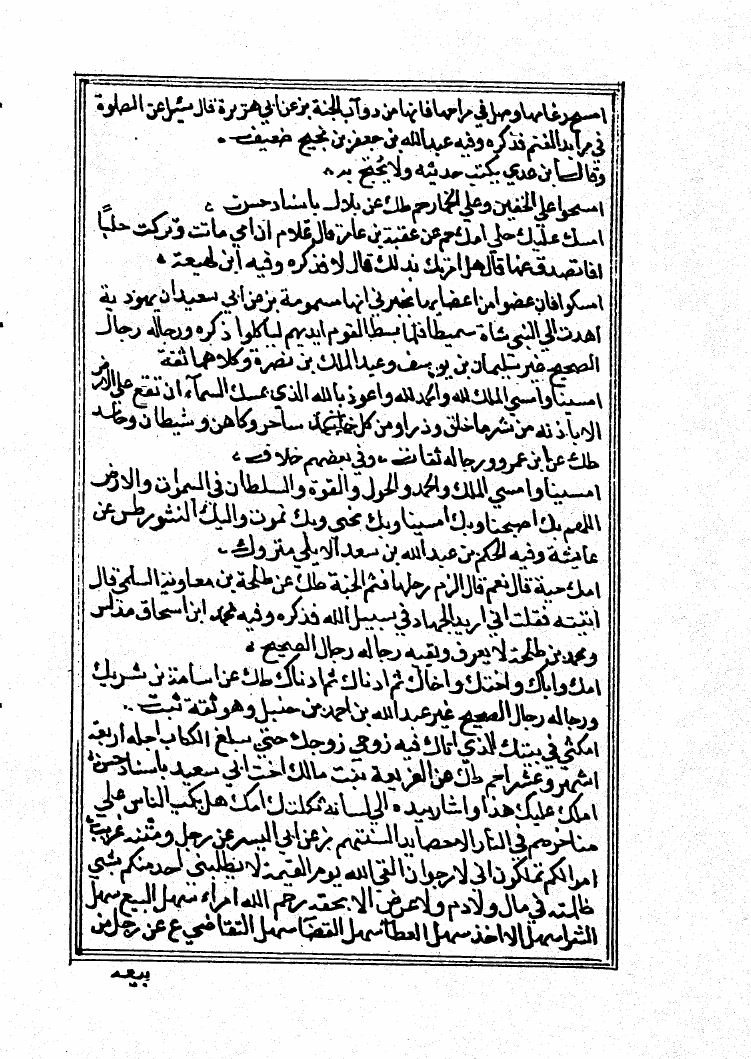 امسح رغامها وصل في مراحها فانها من دواب الجنة بز عن ابي هريرة قال سئل عن الصلوة
في مرابد الغنم فذكره وفيه عبد الله بن جعفر بن نجيح ضعيف
وقال ابن عدي يكتب حديثه ولا يحتج به
امسحوا على الخفين وعلى الخمار حم طك عن بلال باسناد حسن
امسك عليك حلي امك حم عن عقبة بن عامر قال غلام ان امي ماتت وتركت حليا
افاتصدق عنها قال هل امرتك بذلك قال لا فذكره وفيه ابن لهيعة
امسكوا فان عضوا من اعضايها يخبرني انها مسمومة بز عن ابي سعيد ان يهودية
اهدت الى النبي شاة سميطا فلما بسط القوم ايديهم لياكلوا ذكره ورجاله رجال
الصحيح غير سليمان بن يوسف وعبد الملك بن نضرة وكلاهما ثقة
امسينا وامسي الملك لله والحمد لله واعوذ بالله الذي يمسك السماء ان تقع على الارض
الا باذنه من شر ما خلق وذرا ومن كل ساحر وكاهن وشيطان وحاسد
طك عن ابن عمرو ورجاله ثقات وفي بعضهم خلاف
امسينا وامسي الملك والحمد والحول والقوة والسلطان في السموات والارض
اللهم بك اصبحنا وبك امسينا وبك نحيى وبك نموت واليك النشور طس عن
عايشة وفيه الحكم بن عبد الله بن سعد الايلي متروك
امك حية قال نعم قال الزم رجلها فثم الجنة طك عن طلحة بن معاوية السلمي قال
اتيته فقلت اني اريد الجهاد في سبيل الله فذكره وفيه محمد ابن اسحاق مدلس
ومحمد بن طلحة لا يعرف وبقيه رجاله رجال الصحيح
امك واباك واختك واخاك ثم ادناك ثم ادناك طك عن اسامة بن شريك
ورجاله رجال الصحيح غير عبد الله بن احمد بن حنبل وهو ثقة ثبت
امكثي في بيتك الذي اتاك فيه زوجك حتى يبلغ الكتاب اجله اربعة
اشهر وعشرا حم طك عن الفريعة بنت مالك اخت ابي سعيد باسناد حسن
املك عليك هذا واشار بيده الى لسانه ثكلتك امك هل يكب الناس على
مناخرهم في النار الا حصايد السنتهم بز عن ابي اليسر عن رجل ومتنه غريب
اموالكم تملكون اني لارجو ان القى الله يوم القيمة لا يطلبني احد منكم بشي
ظلمته في مال ولا دم ولا عرض الا بحقه رحم الله امراء سهل البيع سهل
الشرا سهل الاخذ سهل العطا سهل القضا سهل التقاضي ع عن رجل من
بيعه